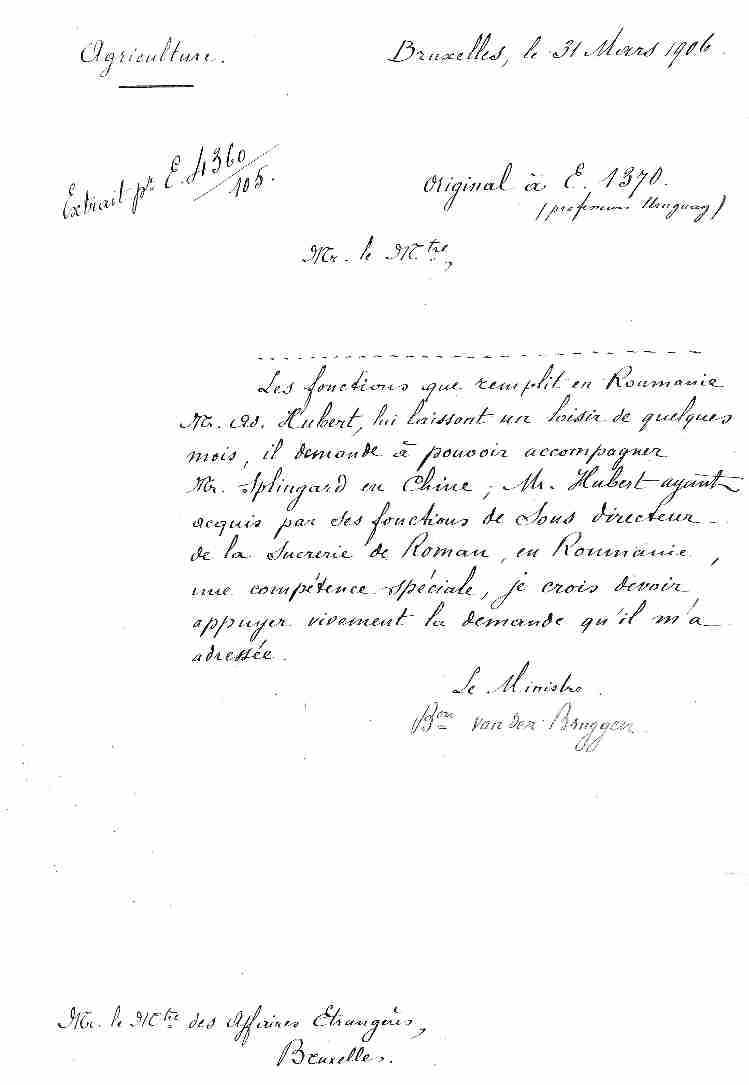 Agriculture.
Bruxelles, le 31 Mars 1906.
Extrait pr E. 4360/105.
Original à E. 1370.
(professeurs Uruguay)
Mr. le Mtre,
Les fonctions que remplit en Roumanie
Mr. Ad. Hubert, lui laissant un loisir de quelques
mois, il demande à pouvoir accompagner
Mr. Splingard en Chine; Mr. Hubert ayant
acquis par ses fonctions de Sous directeur
de la Sucrerie de Roman, en Roumanie,
une compétence spéciale, je crois devoir
appuyer vivement la demande qu'il m'a
adressée.
Le Ministre.
Bon van der Bruggen.
Mr. le Mtre des Affaires Etrangères,
Bruxelles.